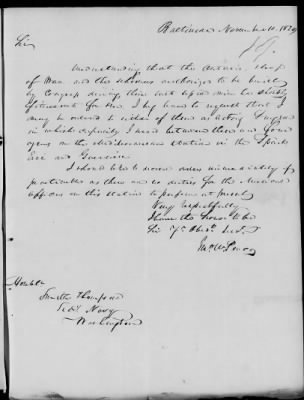 Baltimore November 10, 182
Sir
Understanding that the Ontario Sloop
of War and the Schrs authorized to be built
by Congress during their last session will be shortly
fitted out for Sea. I beg leave to request that I
may be ordered to either of them as acting Surgeon
in which capacity I acted between three and four
years on the Mediterranean station in the Spark
and Guerriere
I should like to receive orders immediately if
practicable as there are no duties for the Medical
officers on this station to perform at present
Very respectfully
I have the honor to be
Sir Yr. Obdt. Servt.
Honble
Smith Thompson
Secy Navy
Washington